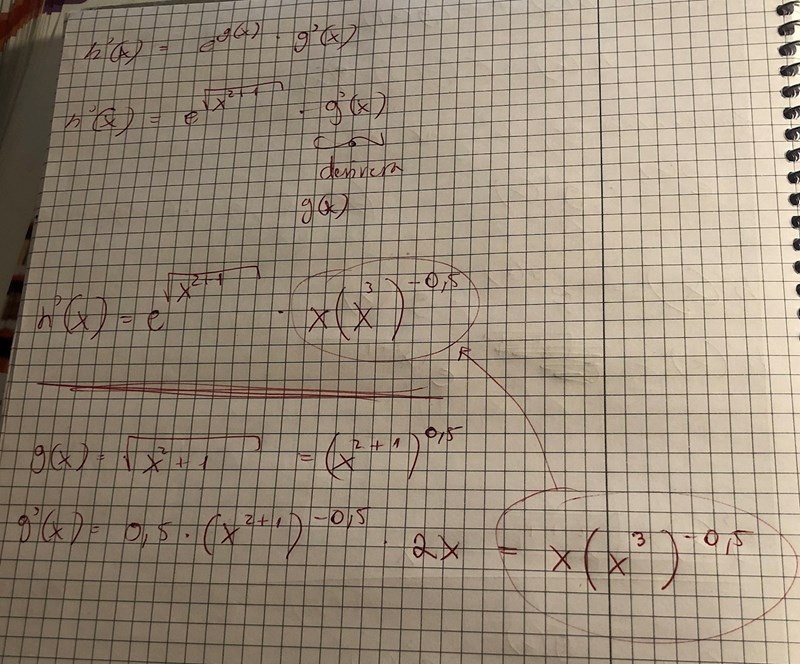 h'(x) = e^g(x) · g'(x)
h'(x) = e^√x^2+1 · g'(x)
derivera
g(x)
h'(x) = e^√x^2+1 · x(x^3)^-0,5
g(x) = √x^2+1 = (x^2+1)^0,5
g'(x) = 0,5 · (x^2+1)^-0,5 · 2x = x(x^3)^-0,5